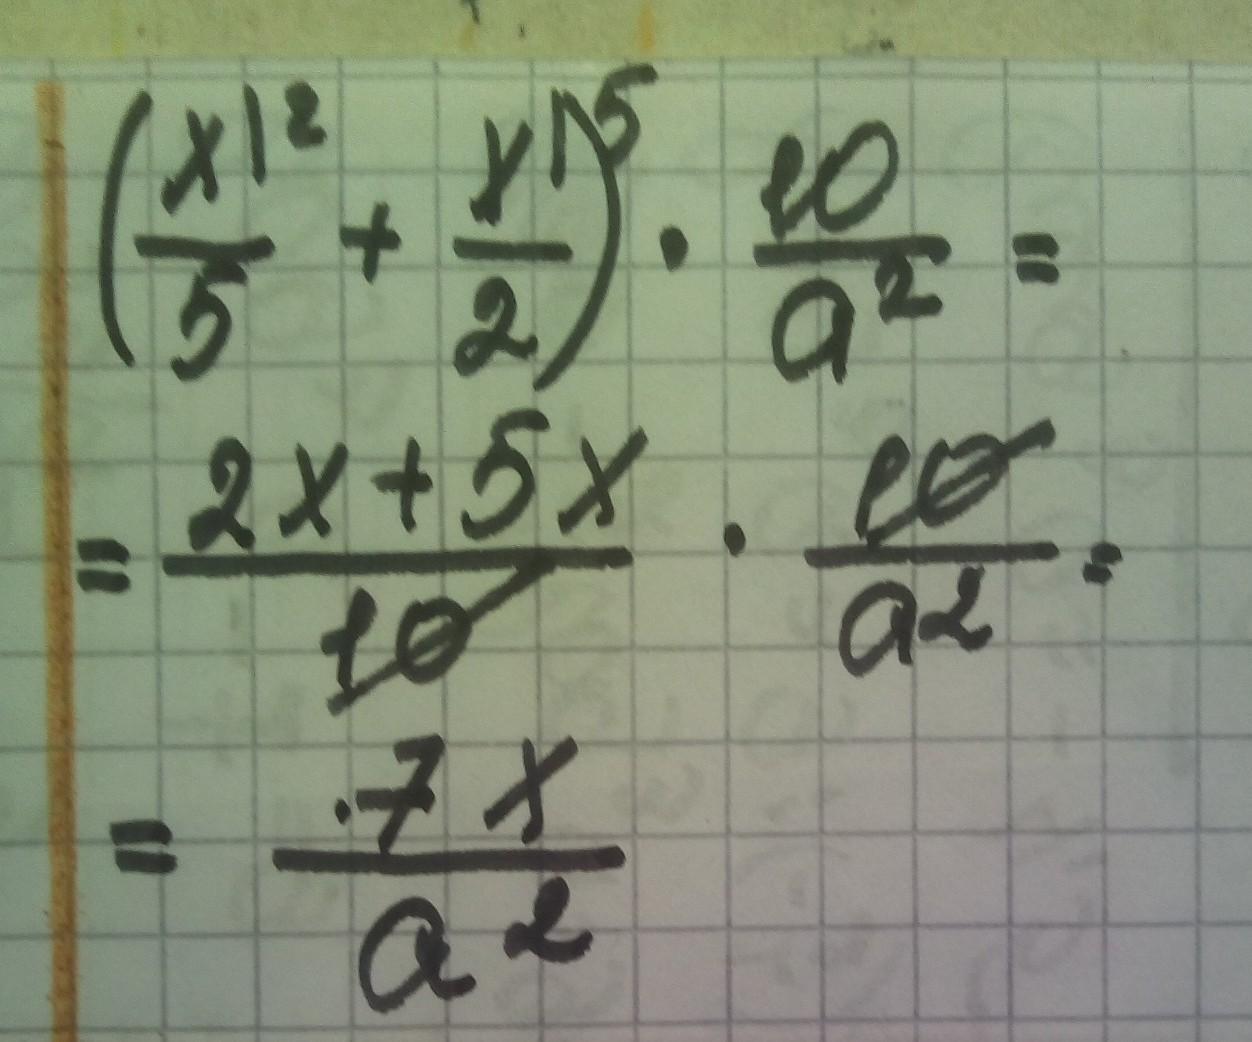 (x|²/5 + x|⁵/2) · 10/a² =
= (2x + 5x)/10 · 10/a² =
= 7x/a²